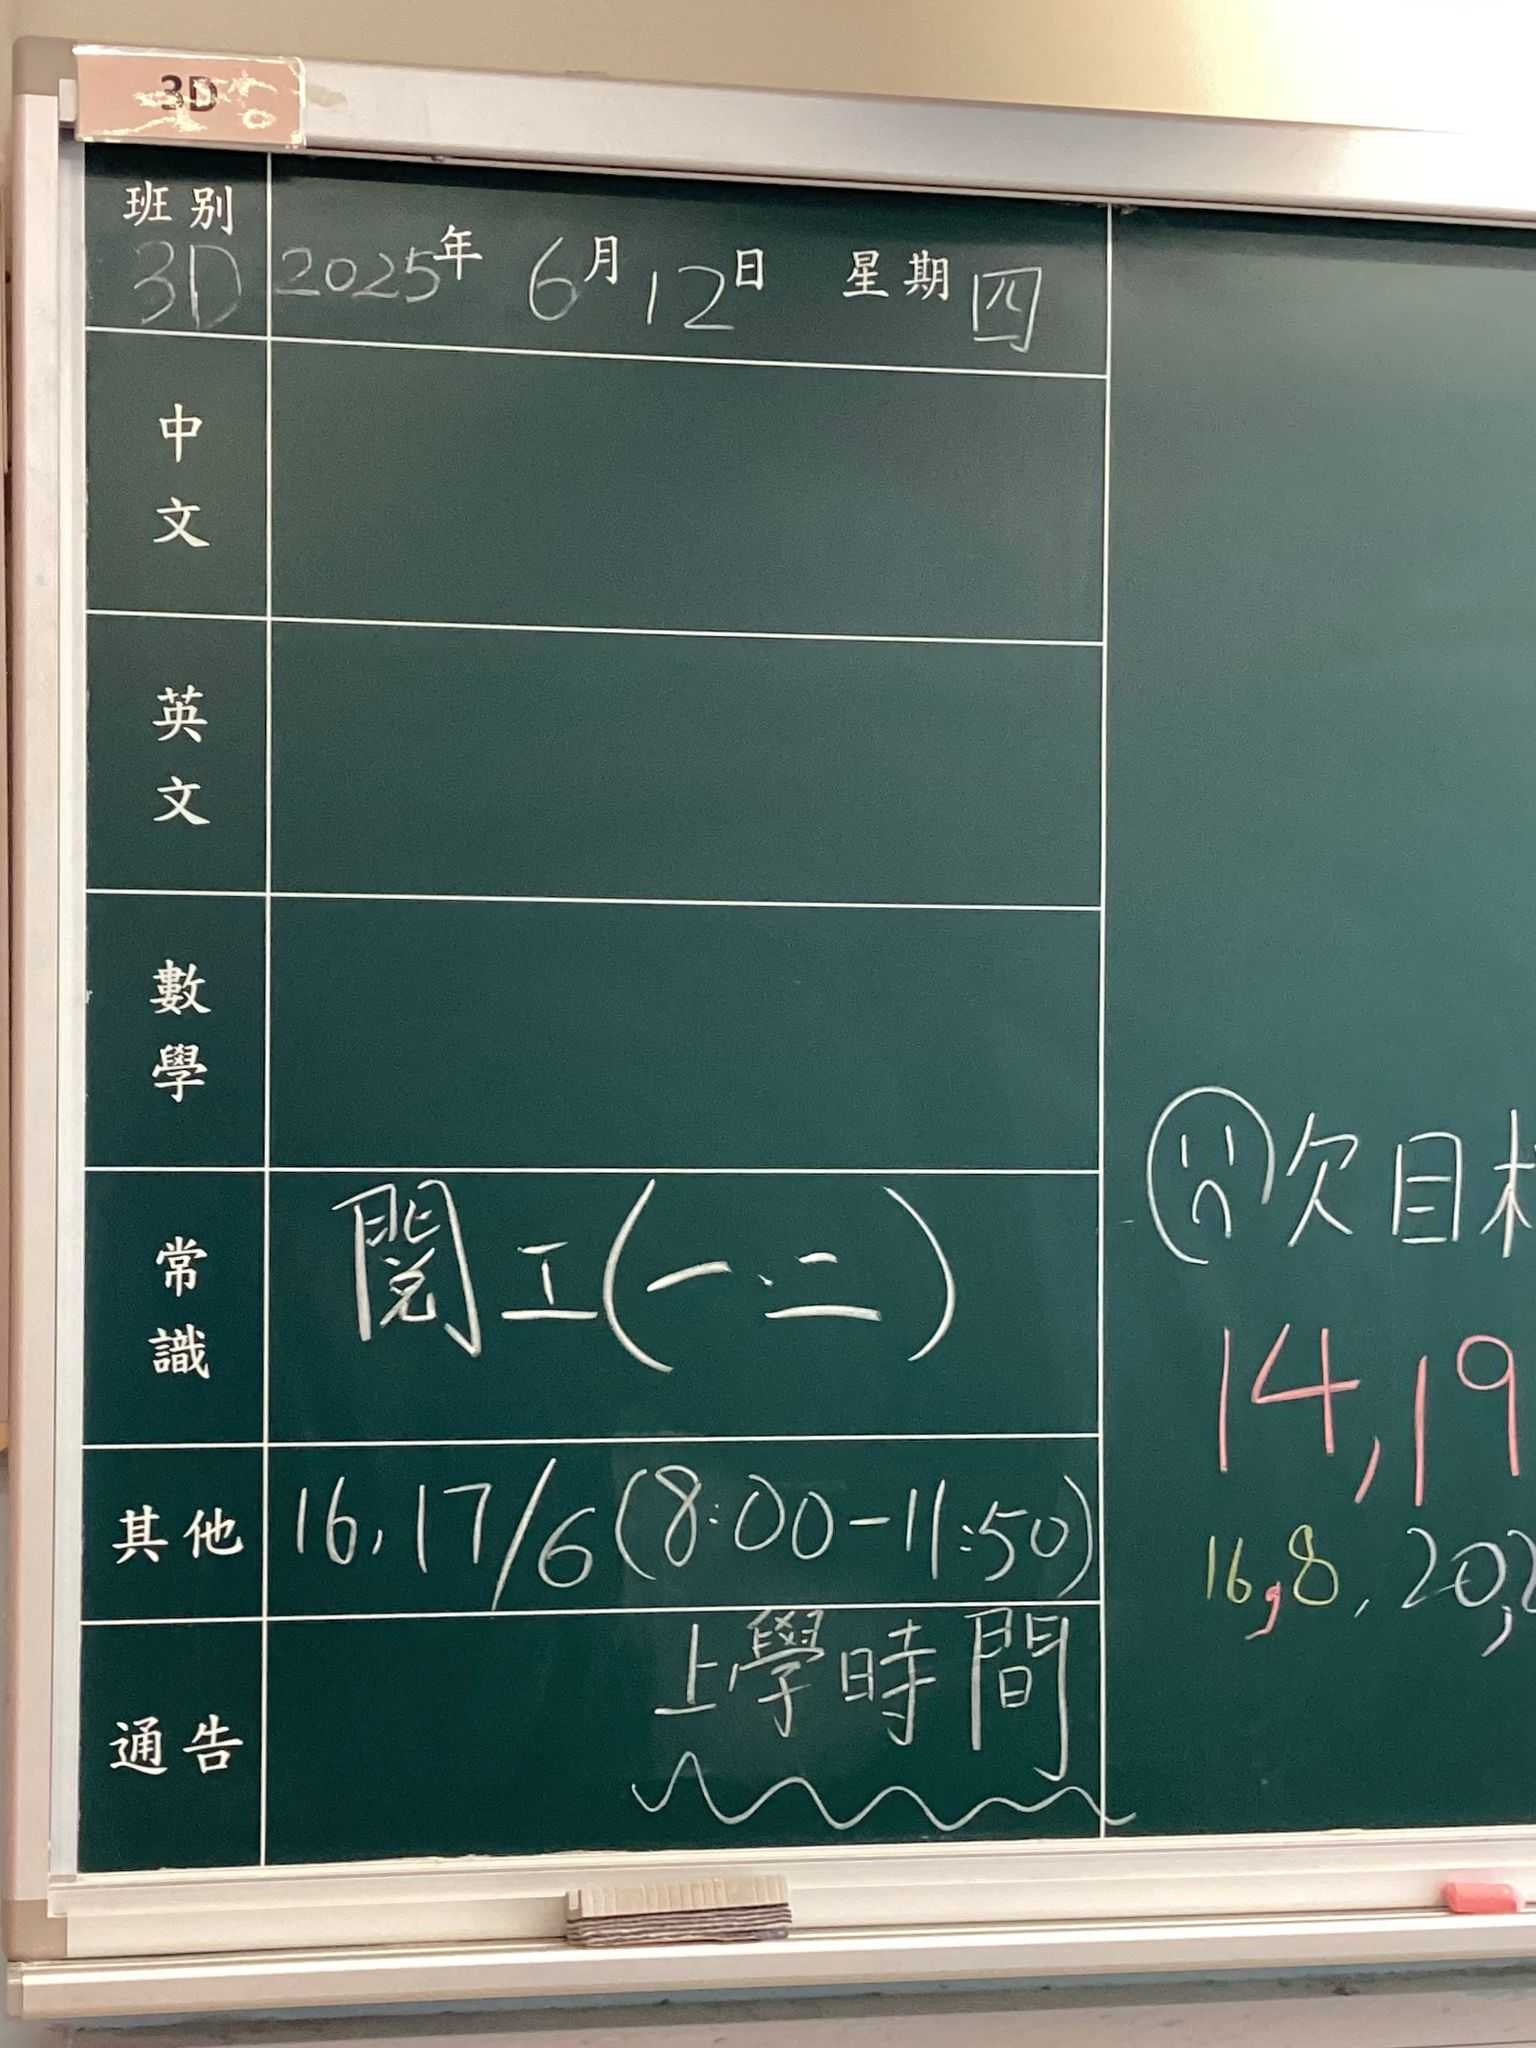 3D
班別
3D
2025年 6月12日 星期四
中文
英文
數學
常識
閱工(一、二)
其他
16,17/6(8:00-11:50)
上學時間
通告
欠目
14,19
16,8,20,